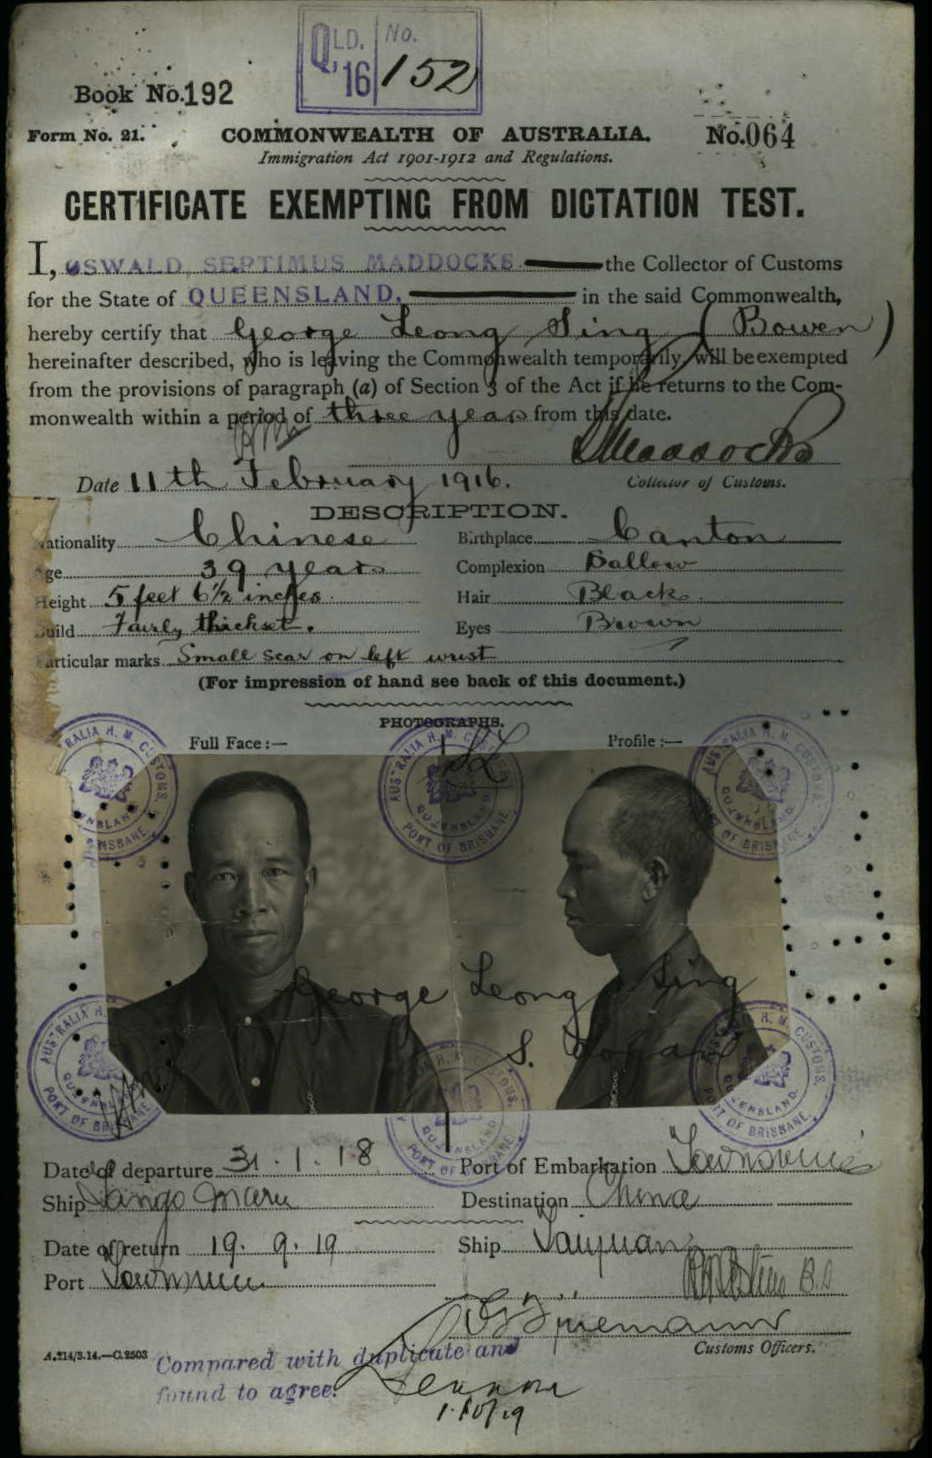 QLD. No.
16 152
Book No. 192
Form No. 21. COMMONWEALTH OF AUSTRALIA. No. 064
Immigration Act 1901-1912 and Regulations.
CERTIFICATE EXEMPTING FROM DICTATION TEST.
I, OSWALD SEPTIMUS MADDOCKS the Collector of Customs
for the State of QUEENSLAND. in the said Commonwealth,
hereby certify that George Leong Sing (Bowen)
hereinafter described, who is leaving the Commonwealth temporarily, will be exempted
from the provisions of paragraph (a) of Section 3 of the Act if he returns to the Com-
monwealth within a period of three years from this date.
Maddocks
Date 11th February 1916. Collector of Customs.
DESCRIPTION.
ationality Chinese Birthplace Canton
ge 39 years Complexion Sallow
Height 5 feet 6½ inches Hair Black.
uild Fairly thickset. Eyes Brown
articular marks Small scar on left wrist
(For impression of hand see back of this document.)
PHOTOGRAPHS.
Full Face:— Profile:—
AUSTRALIA H. M. CUSTOMS. QUEENSLAND PORT OF BRISBANE
George Leong Sing
S.
Date of departure 31. 1. 18 Port of Embarkation Townsville
Ship Tango Maru Destination China
Date of return 19. 9. 19 Ship Taiyuan
Port Townsville
Customs Officers.
A.214/3.14.—C.2503
Compared with duplicate and
found to agree.
1.10/19